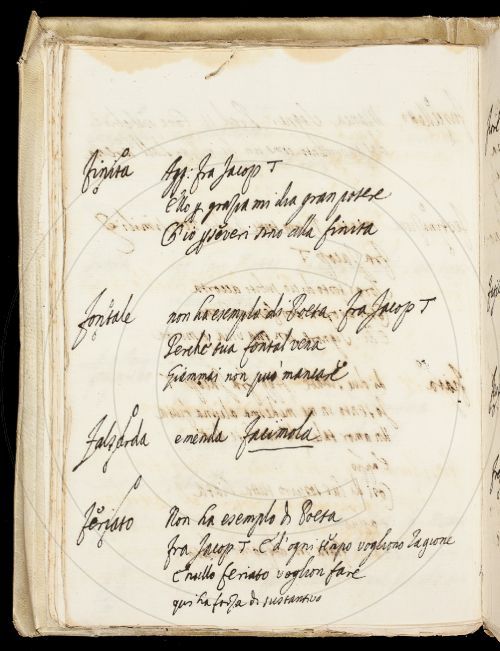 finita Agg: fra Jacop T
Ello p grazia mi dia gran potere
Ch'io perseveri sino alla finita
fontale non ha esemplo di Poeta. fra Jacop T
Perchè tua fontal vena
Giammai non può mancare
Falzarda emenda facimola
feriato Non ha esemplo di Poeta
fra Jacop T. E d'ogni tempo vogliono ragione
E nullo feriato voglion fare
qui ha forza di sustantivo